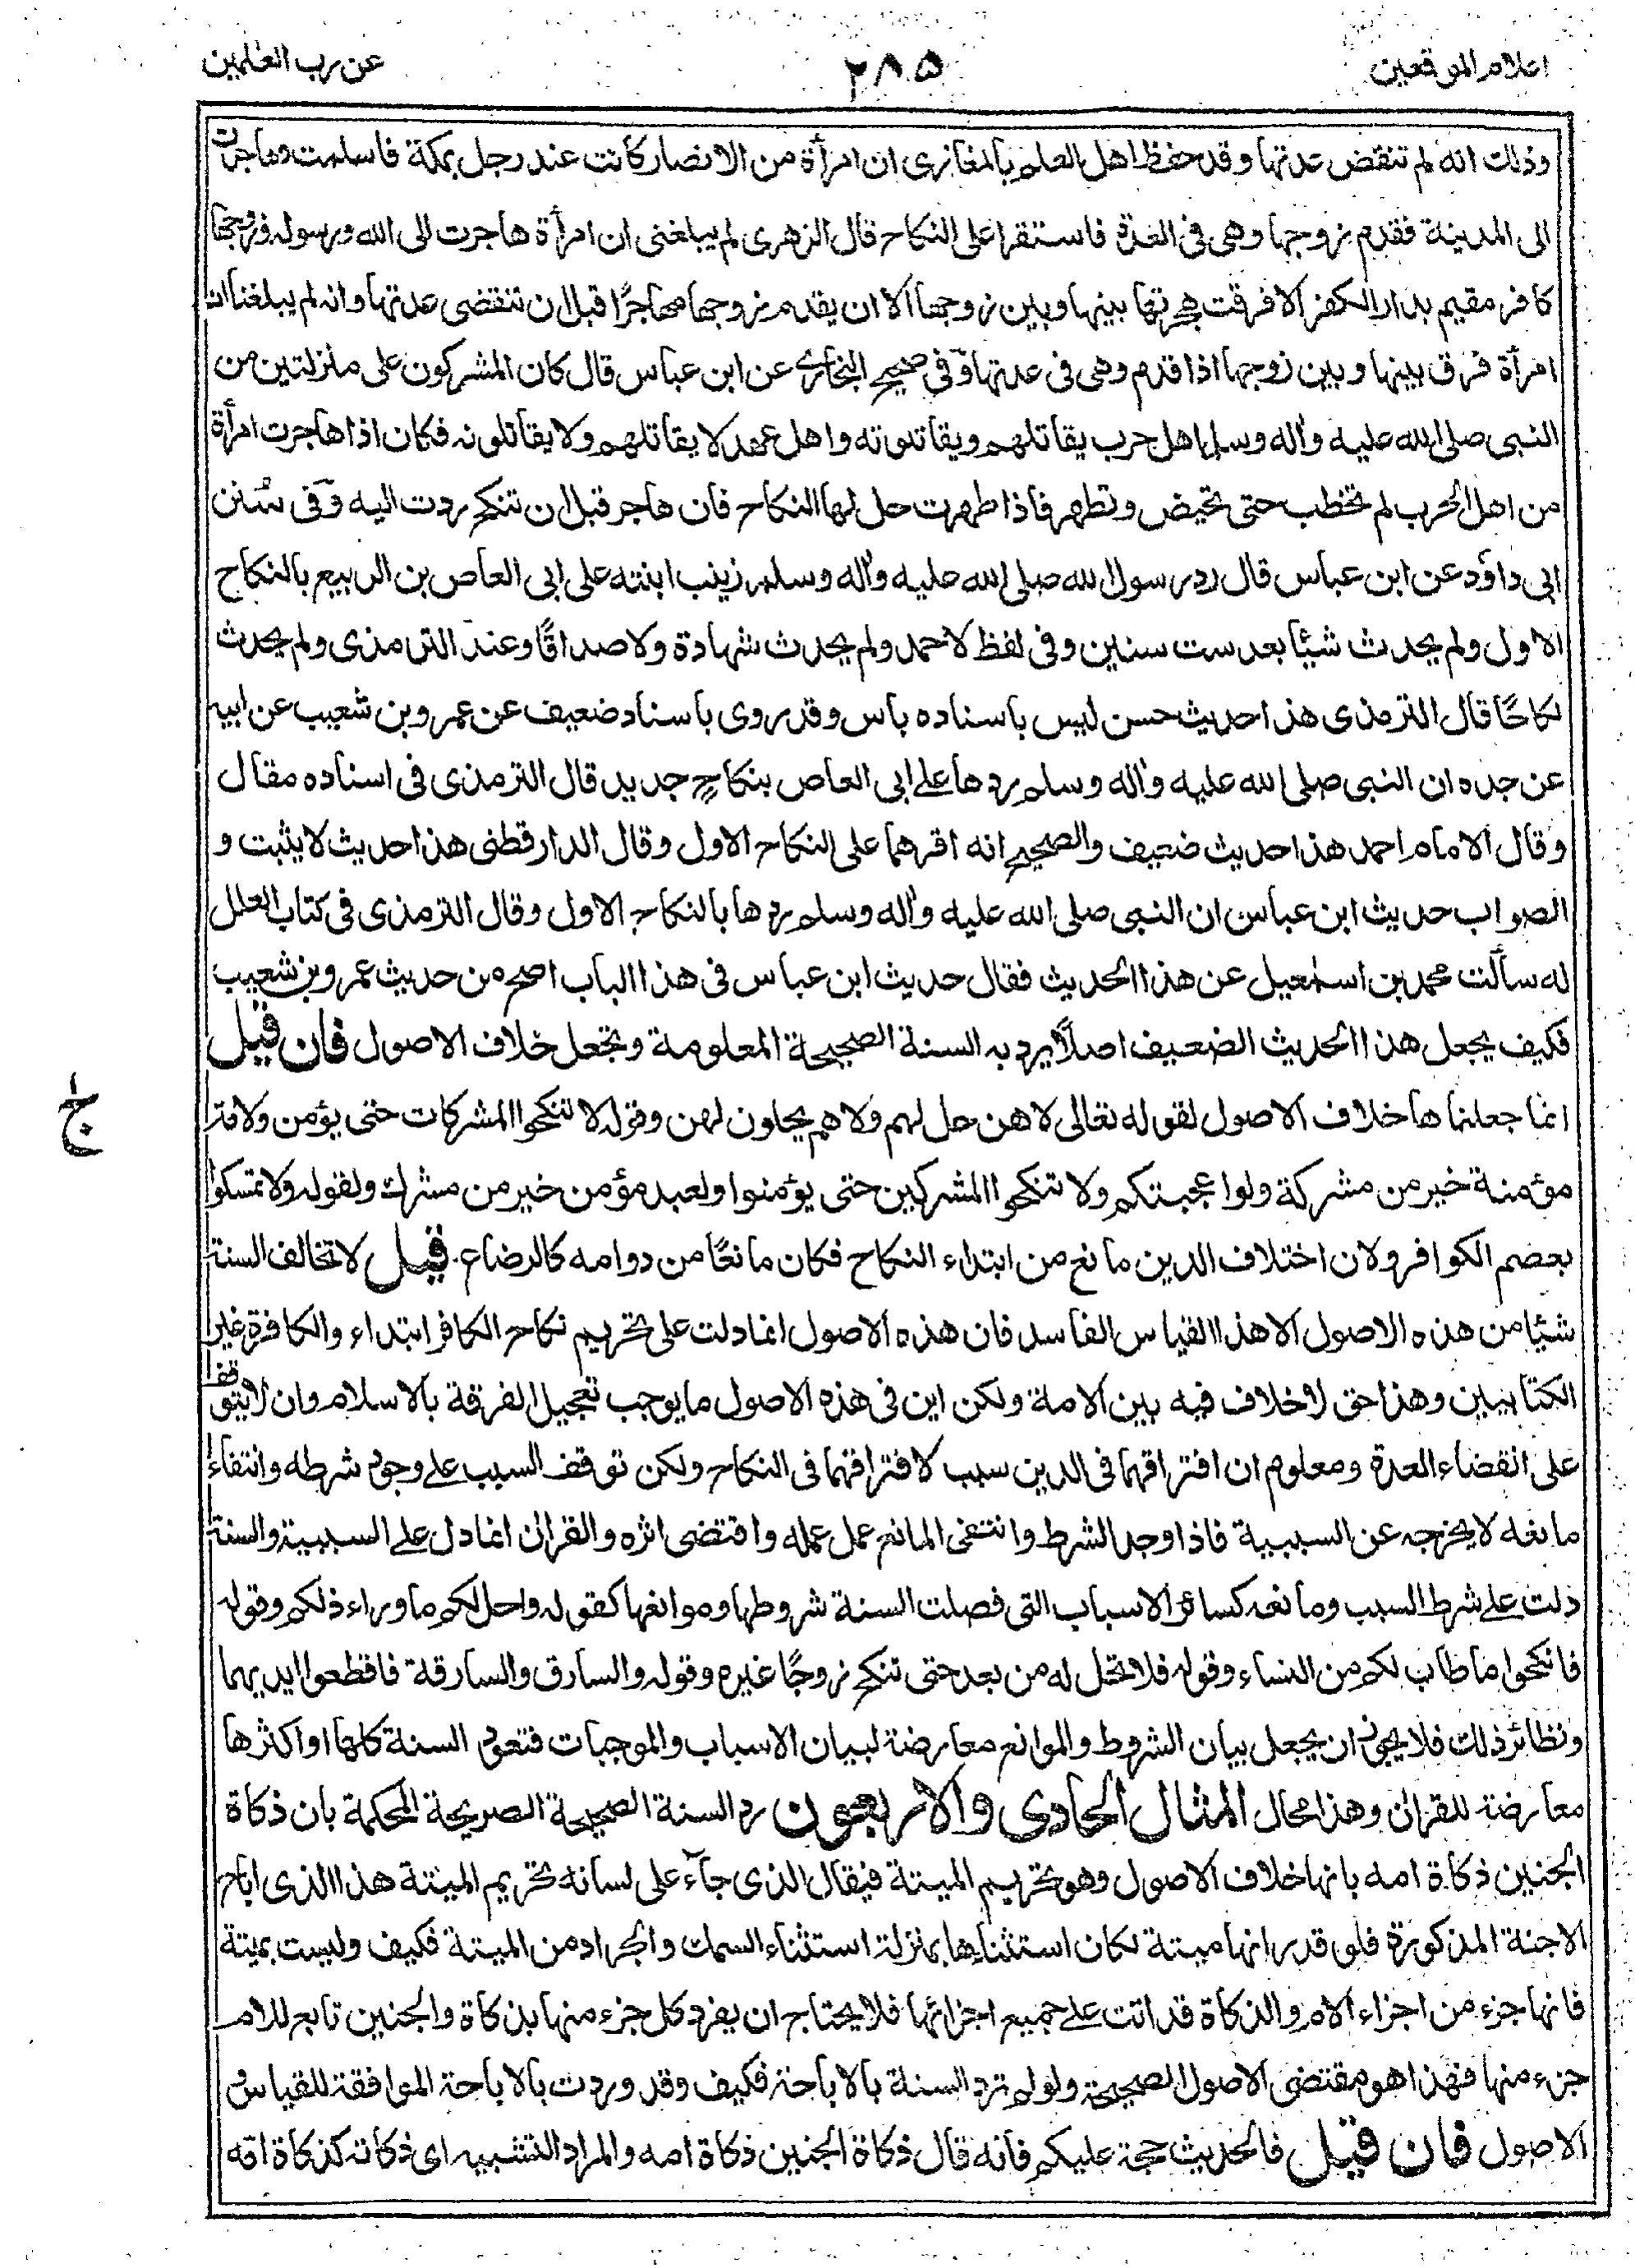 اعلام الموقعين
٢٨٥
عن رب العلمين
وذلك انه لم تنقض عدتها وقد حفظ اهل العلم بالمغازى ان امرأة من الانصار كانت عند رجل بمكة فاسلمت وهاجرت
الى المدينة فقدم زوجها وهى فى العدة فاستقرا على النكاح قال الزهرى لم يبلغنى ان امرأة هاجرت الى الله ورسوله وزوجها
كافر مقيم بدار الكفر الا فرقت هجرتها بينها وبين زوجها الا ان يقدم زوجها مهاجرًا قبل ان تنقضى عدتها وانه لم يبلغنا ان
امرأة فرق بينها وبين زوجها اذا قدم وهى فى عدتها وفى صحيح البخارى عن ابن عباس قال كان المشركون على منزلتين من
النبى صلى الله عليه واله وسلم اهل حرب يقاتلهم ويقاتلونه واهل عهد لا يقاتلهم ولا يقاتلونه فكان اذا هاجرت امرأة
من اهل الحرب لم تخطب حتى تحيض وتطهر فاذا طهرت حل لها النكاح فان هاجر قبل ان تنكح ردت اليه وفى سنن
ابى داؤد عن ابن عباس قال رد رسول الله صلى الله عليه واله وسلم زينب ابنته على ابى العاص بن الربيع بالنكاح
الاول ولم يحدث شيئا بعد ست سنين وفى لفظ لاحمد ولم يحدث شهادة ولا صداقًا وعند الترمذى ولم يحدث
نكاحًا قال الترمذى هذا حديث حسن ليس باسناده باس وقد روى باسناد ضعيف عن عمرو بن شعيب عن ابيه
عن جده ان النبى صلى الله عليه واله وسلم ردها على ابى العاص بنكاح جديد قال الترمذى فى اسناده مقال
وقال الامام احمد هذا حديث ضعيف والصحيح انه اقرهما على النكاح الاول وقال الدارقطنى هذا حديث لا يثبت و
الصواب حديث ابن عباس ان النبى صلى الله عليه واله وسلم ردها بالنكاح الاول وقال الترمذى فى كتاب العلل
له سألت محمد بن اسمعيل عن هذا الحديث فقال حديث ابن عباس فى هذا الباب اصح من حديث عمرو بن شعيب
فكيف يجعل هذا الحديث الضعيف اصلًا يرد به السنة الصحيحة المعلومة وتجعل خلاف الاصول فان قيل
انما جعلناها خلاف الاصول لقوله تعالى لا هن حل لهم ولا هم يحلون لهن وقوله لا تنكحوا المشركات حتى يؤمن ولامة
مؤمنة خير من مشركة ولو اعجبتكم ولا تنكحوا المشركين حتى يؤمنوا ولعبد مؤمن خير من مشرك ولقوله ولا تمسكوا
بعصم الكوافر ولان اختلاف الدين مانع من ابتداء النكاح فكان مانعًا من دوامه كالرضاع. قيل لا تخالف السنة
شيئا من هذه الاصول الا هذا القياس الفاسد فان هذه الاصول انما دلت على تحريم نكاح الكافر ابتداء والكافرة غير
الكتابيين وهذا حق لا خلاف فيه بين الامة ولكن اين فى هذه الاصول ما يوجب تعجيل الفرقة بالاسلام وان لا يتوقف
على انقضاء العدة ومعلوم ان افتراقهما فى الدين سبب لافتراقهما فى النكاح ولكن توقف السبب على وجود شرطه وانتفاء
مانعه لا يخرجه عن السببية فاذا وجد الشرط وانتفى المانع عمل عمله واقتضى اثره والقران انما دل على السببية والسنة
دلت على شرط السبب ومانعه كسائر الاسباب التى فصلت السنة شروطها وموانعها كقوله واحل لكم ما وراء ذلكم وقوله
فانكحوا ما طاب لكم من النساء وقوله فلا تحل له من بعد حتى تنكح زوجًا غيره وقوله والسارق والسارقة فاقطعوا ايديهما
ونظائر ذلك فلا يجوز ان يجعل بيان الشروط والموانع معارضة لبيان الاسباب والموجبات فتعود السنة كلها او اكثرها
معارضة للقران وهذا محال المثال الحادى والاربعون رد السنة الصحيحة الصريحة المحكمة بان ذكاة
الجنين ذكاة امه بانها خلاف الاصول وهو تحريم الميتة فيقال الذى جاء على لسانه تحريم الميتة هذا الذى اباح
الاجنة المذكورة فلو قدر انها ميتة لكان استثناءها بمنزلة استثناء السمك والجراد من الميتة فكيف وليست بميتة
فانها جزء من اجزاء الام والذكاة قد اتت على جميع اجزائها فلا يحتاج ان يفرد كل جزء منها بذكاة والجنين تابع للام
جزء منها فهذا هو مقتضى الاصول الصحيحة ولو لم ترد السنة بالاباحة فكيف وقد وردت بالاباحة الموافقة للقياس و
الاصول فان قيل فالحديث حجة عليكم فانه قال ذكاة الجنين ذكاة امه والمراد التشبيه اى ذكاته كذكاة امه